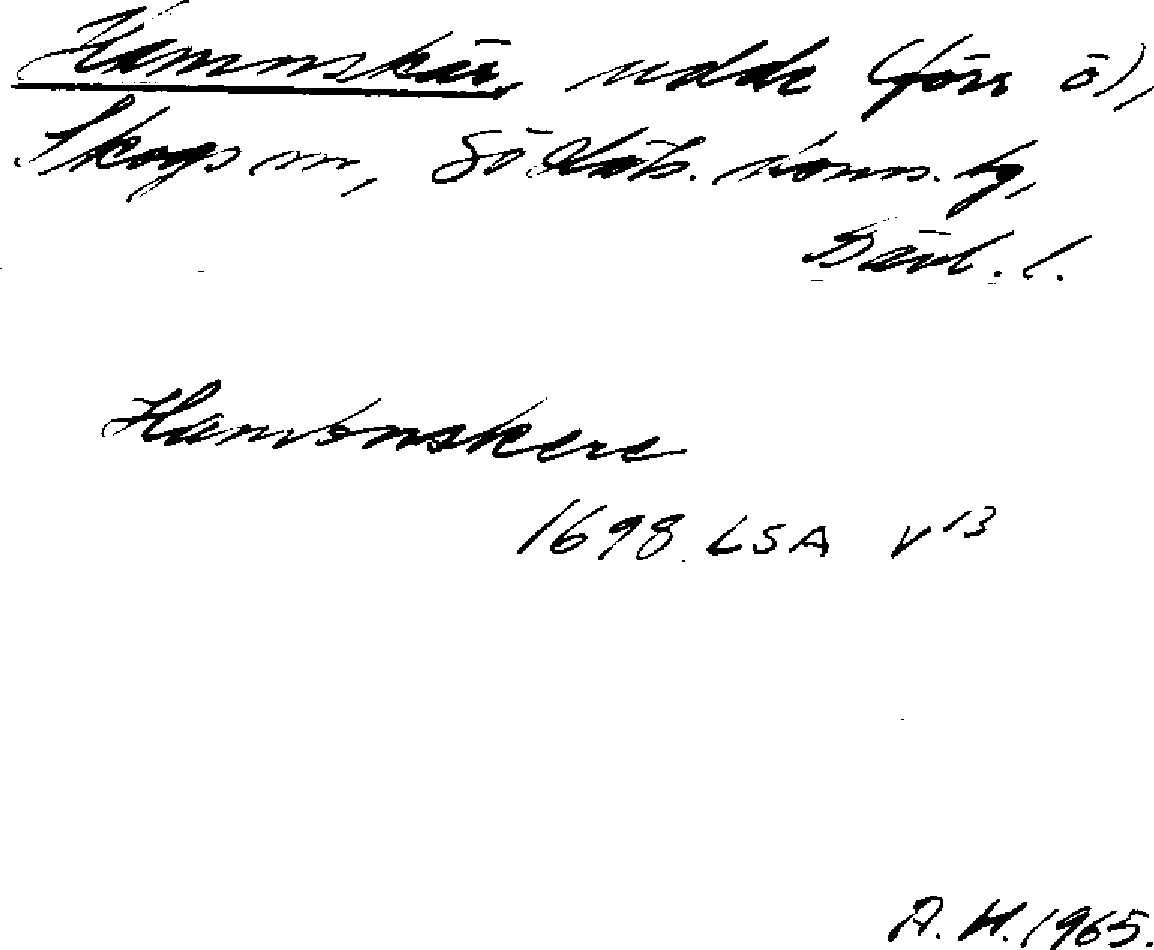 Hamnskär, udde (förr ö),
Skogs m, Söderh. komn. bg,
Gävl. l.
Hambnskere
1698 LSA V 13
A. H. 1965.